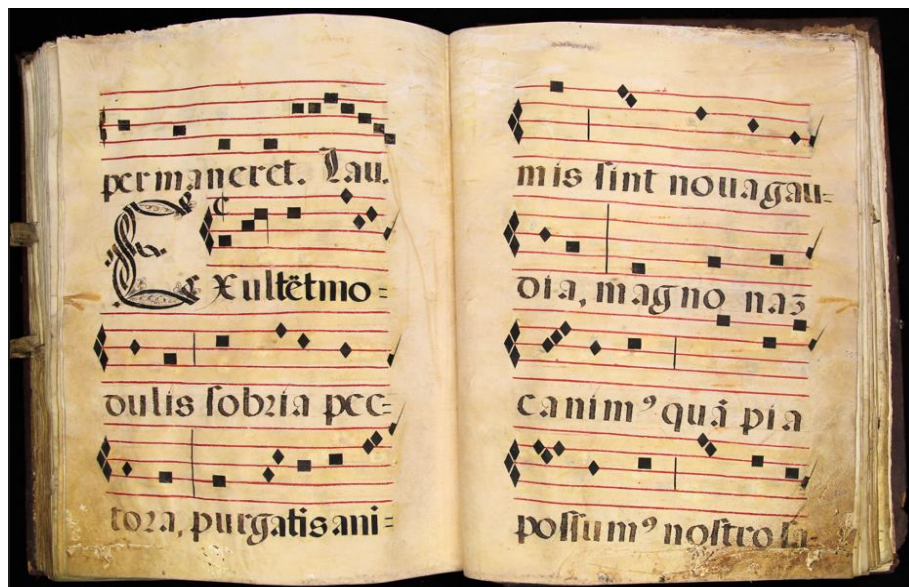 permaneret. Lau.
Exultētmo=
dulis sobria pec=
tora, purgatis ani=
mis sint noua gau=
dia, magno naz
canim⁹ quā pia
possum⁹ nostro sa=